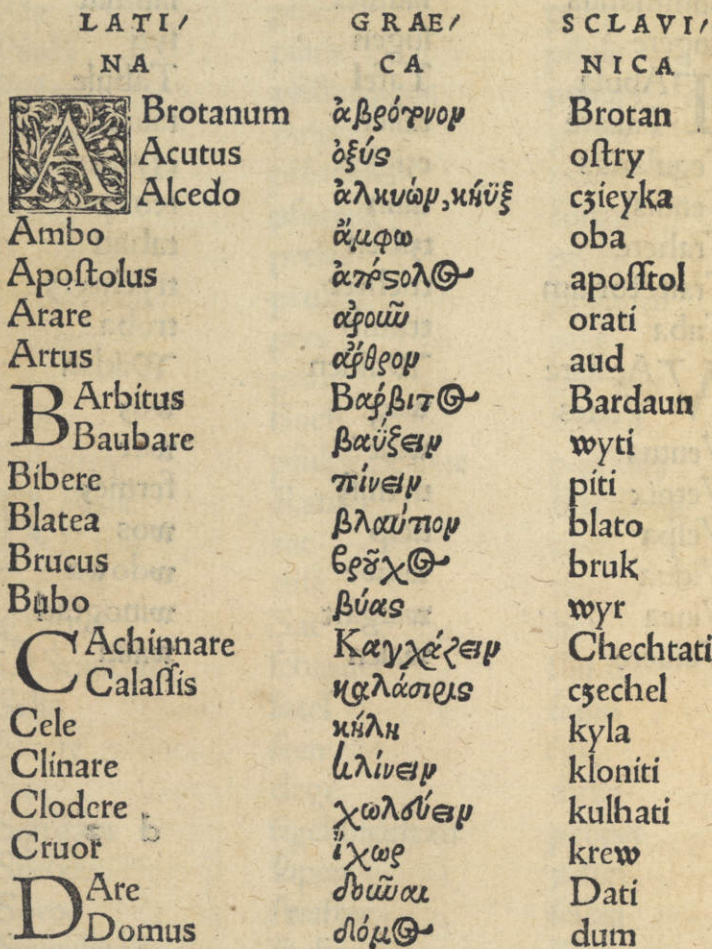 LATI/ GRAE/ SCLAVI/
NA CA NICA
ABrotanum ἀβρότονον Brotan
Acutus ὀξύς oſtry
Alcedo ἀλκυὼν, κήϋξ czieyka
Ambo ἄμφω oba
Apoſtolus ἀπόςολος apoſſtol
Arare ἀροῦν orati
Artus ἄρθρον aud
BArbitus Βάρβιτος Bardaun
Baubare βαΰξειν wyti
Bibere πίνειν piti
Blatea βλαύτιον blato
Brucus βροῦχος bruk
Bubo βύας wyr
CAchinnare Καγχάζειν Chechtati
Calaſſis καλάσιρις czechel
Cele κήλη kyla
Clinare κλίνειν kloniti
Clodere χωλεύειν kulhati
Cruor ἴχωρ krew
DAre δοῦναι Dati
Domus δόμος dum